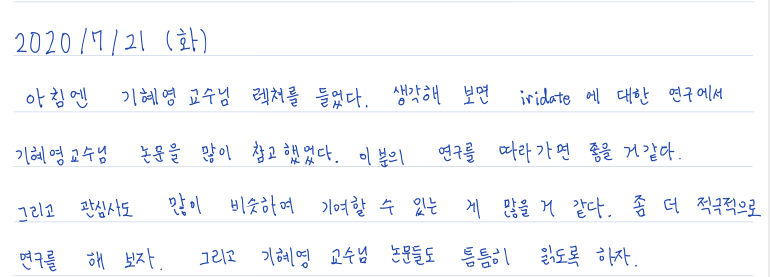 2020/7/21 (화)
아침엔 기혜영 교수님 렉쳐를 들었다. 생각해 보면 iridate 에 대한 연구에서
기혜영 교수님 논문을 많이 참고했었다. 이분의 연구를 따라가면 좋을 거 같다.
그리고 관심사도 많이 비슷하여 기여할 수 있는 게 많을 거 같다. 좀 더 적극적으로
연구를 해 보자. 그리고 기혜영 교수님 논문들도 틈틈히 읽도록 하자.